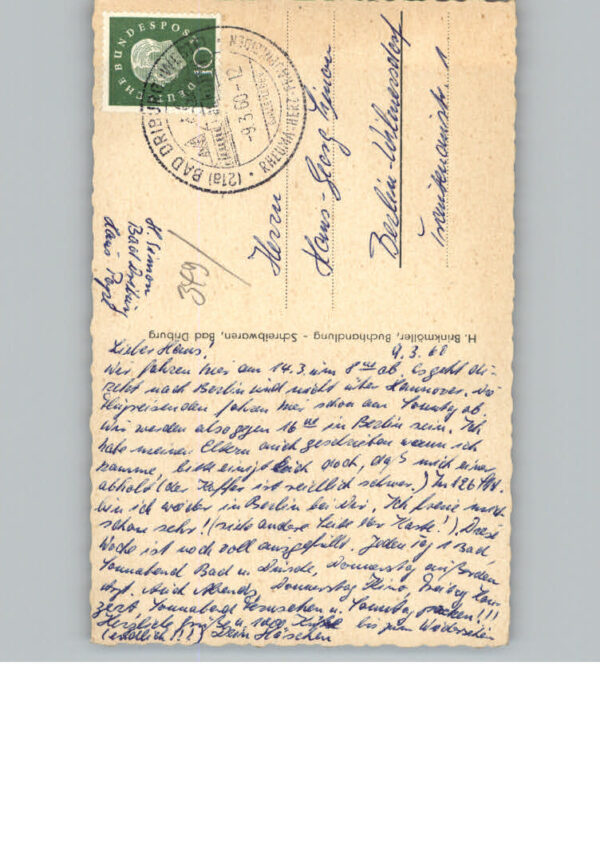 DEUTSCHE BUNDESPOST
10
(21a) BAD DRIBURG
-9.3.60-12
RHEUMA·HERZ·FRAUENLEIDEN
Herrn
Hans-Georg Simon
Berlin-Wilmersdorf
1
H. Simon
Bad Driburg
Haus
379
H. Brinkmöller, Buchhandlung - Schreibwaren, Bad Driburg
9.3.60
Lieber Hans!
Wir fahren hier am 14.3. um 8 ab. Es geht di-
rekt nach Berlin und nicht über Hannover. Die
Flugreisenden fahren hier schon am Sonntag ab.
Wir werden also gegen 16 in Berlin sein. Ich
habe meinen Eltern auch geschrieben wann ich
komme, bitte einigt Euch doch, daß mich einer
abholt (der Koffer ist reichlich schwer.) In 126 Std.
bin ich wieder in Berlin bei Dir. Ich freue mich
schon sehr! (siehe andere Seite der Karte!). Diese
Woche ist noch voll ausgefüllt. Jeden Tag 1 Bad,
Sonnabend Bad u. Dusche, Donnerstag außerdem
Arzt. Auch Abends, Donnerstag Kino, Freitag Kon-
zert, Sonnabend Fernsehen u. Sonntag packen!!!
Herzliche Grüße u. 1000 Küße bis zum Wiedersehen
(endlich!!!) Dein Häschen